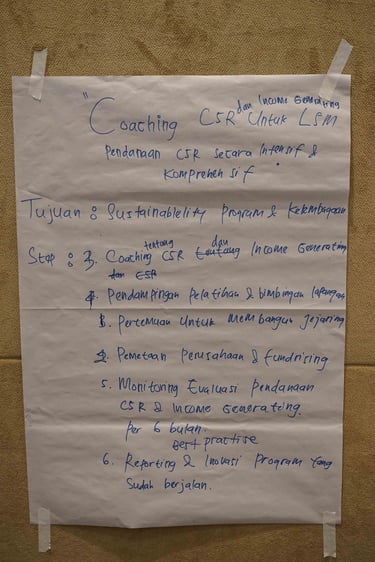 "Coaching CSR dan Income Generating Untuk LSM
Pendanaan CSR secara Intensif &
Komprehensif
Tujuan : Sustainablelity Program & Kelembagaan
Step : 3. Coaching tentang CSR dan Income Generating
dan CSR
4. Pendampingan Pelatihan & bimbingan lapangan
1. Pertemuan Untuk Membangun Jejaring
2. Pemetaan Perusahaan & Fundrising
5. Monitoring Evaluasi Pendanaan
CSR & Income Generating
Per 6 bulan.
Best practise
6. Reporting & Inovasi Program yang
Sudah berjalan.